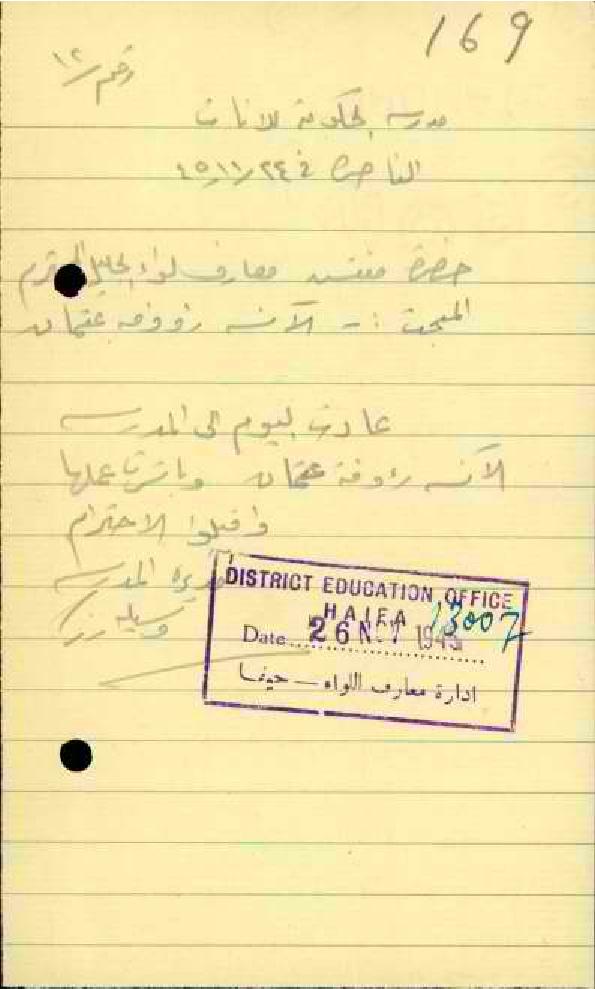 169
رقم /١٢
مدرسة الحكومة للاناث
الناصرة في ٢٤/١١/٤٥
حضرة مفتش معارف لواء الجليل المحترم
المبحث :- الآنسه رؤوفه عثمان
عادت اليوم الى المدرسه
الآنسه رؤوفة عثمان وباشرت عملها
واقبلوا الاحترام
مديره المدرسه
DISTRICT EDUCATION OFFICE
HAIFA 13007
Date 26 NOV 1945
ادارة معارف اللواء — حيفا